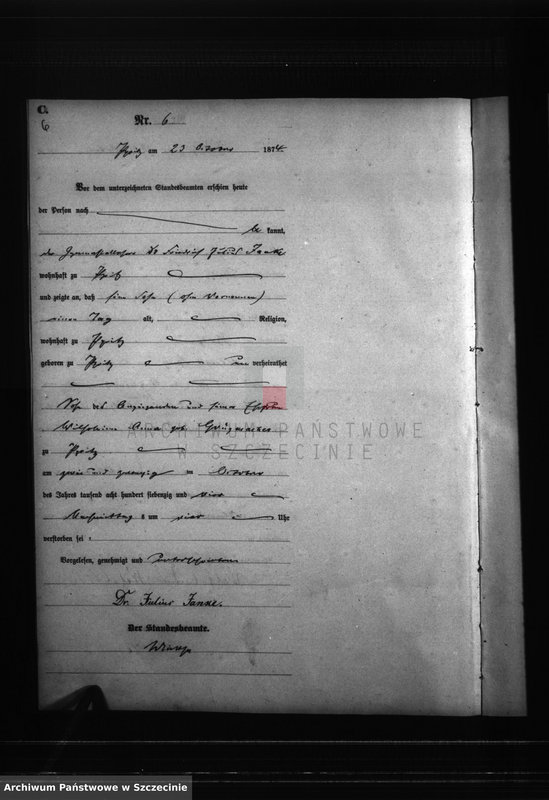 C.
6
Nr. 6
Pyritz am 23 October 1874.
Vor dem unterzeichneten Standesbeamten erschien heute
der Person nach
be kannt,
der Gymnasiallehrer Dr Friedrich Julius Janke
wohnhaft zu Pyritz
und zeigte an, daß sein Sohn (ohne Vornamen)
einen Tag alt, Religion,
wohnhaft zu Pyritz
geboren zu Pyritz un verheirathet
Sohn des Anzeigenden und seiner Ehefrau
Wilhelmine Anna geb.
zu Pyritz
am zwei und zwanzig en October
des Jahres tausend acht hundert siebenzig und vier
Nachmittag s um vier Uhr
verstorben sei.
Vorgelesen, genehmigt und unterschrieben
Dr. Julius Janke.
Der Standesbeamte.
ARCHIWUM PAŃSTWOWE
W SZCZECINIE
Archiwum Państwowe w Szczecinie